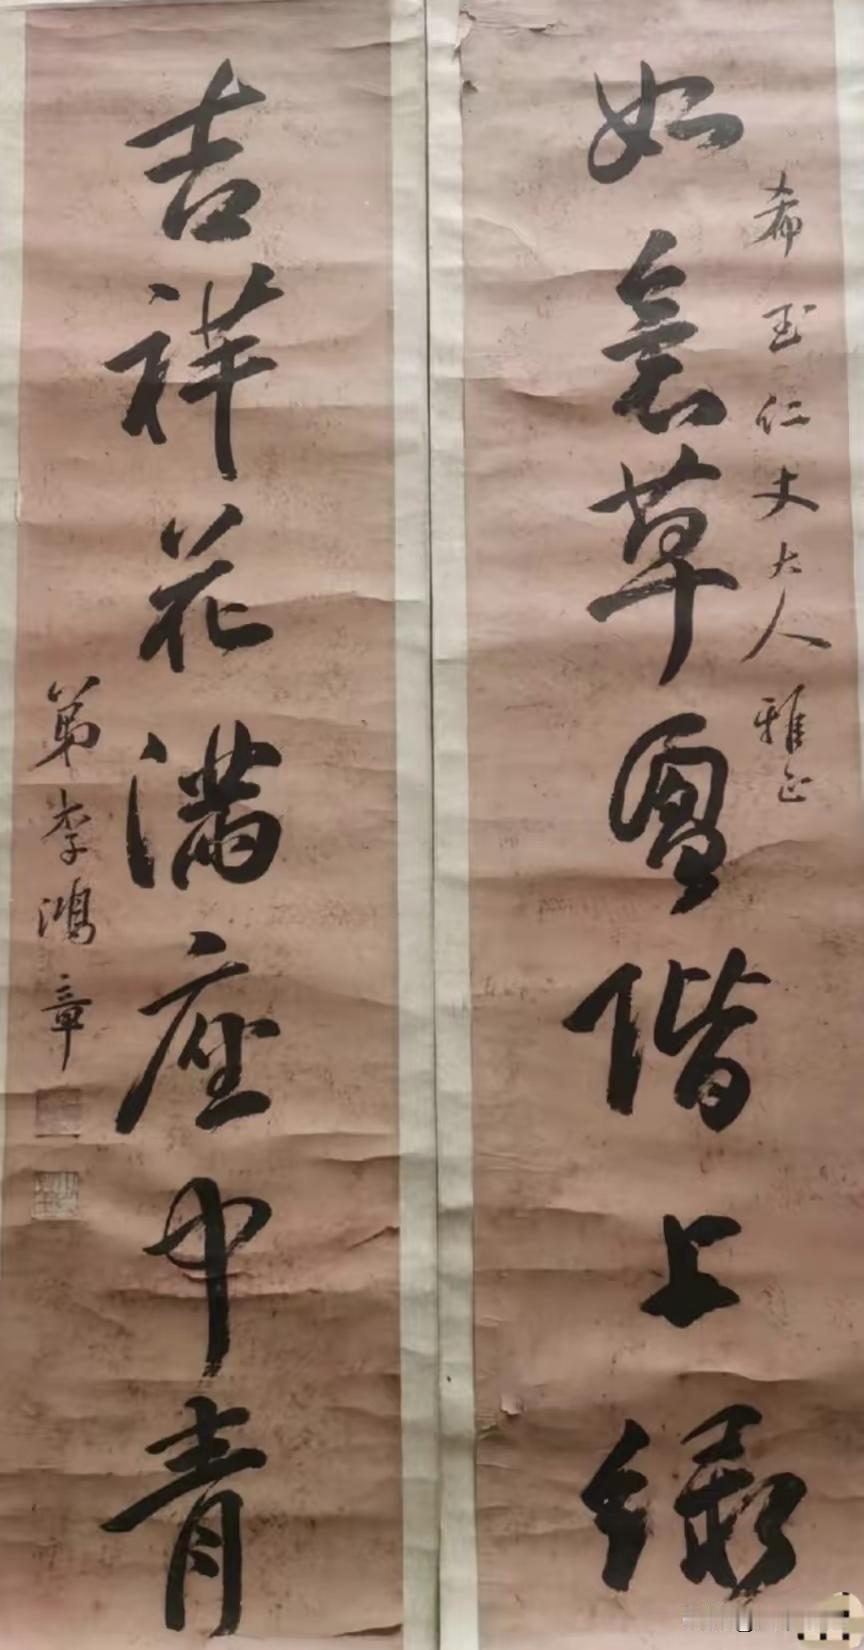 希玉仁丈大人雅正
如意草圍階上綠
吉祥花滿座中青
弟李鴻章